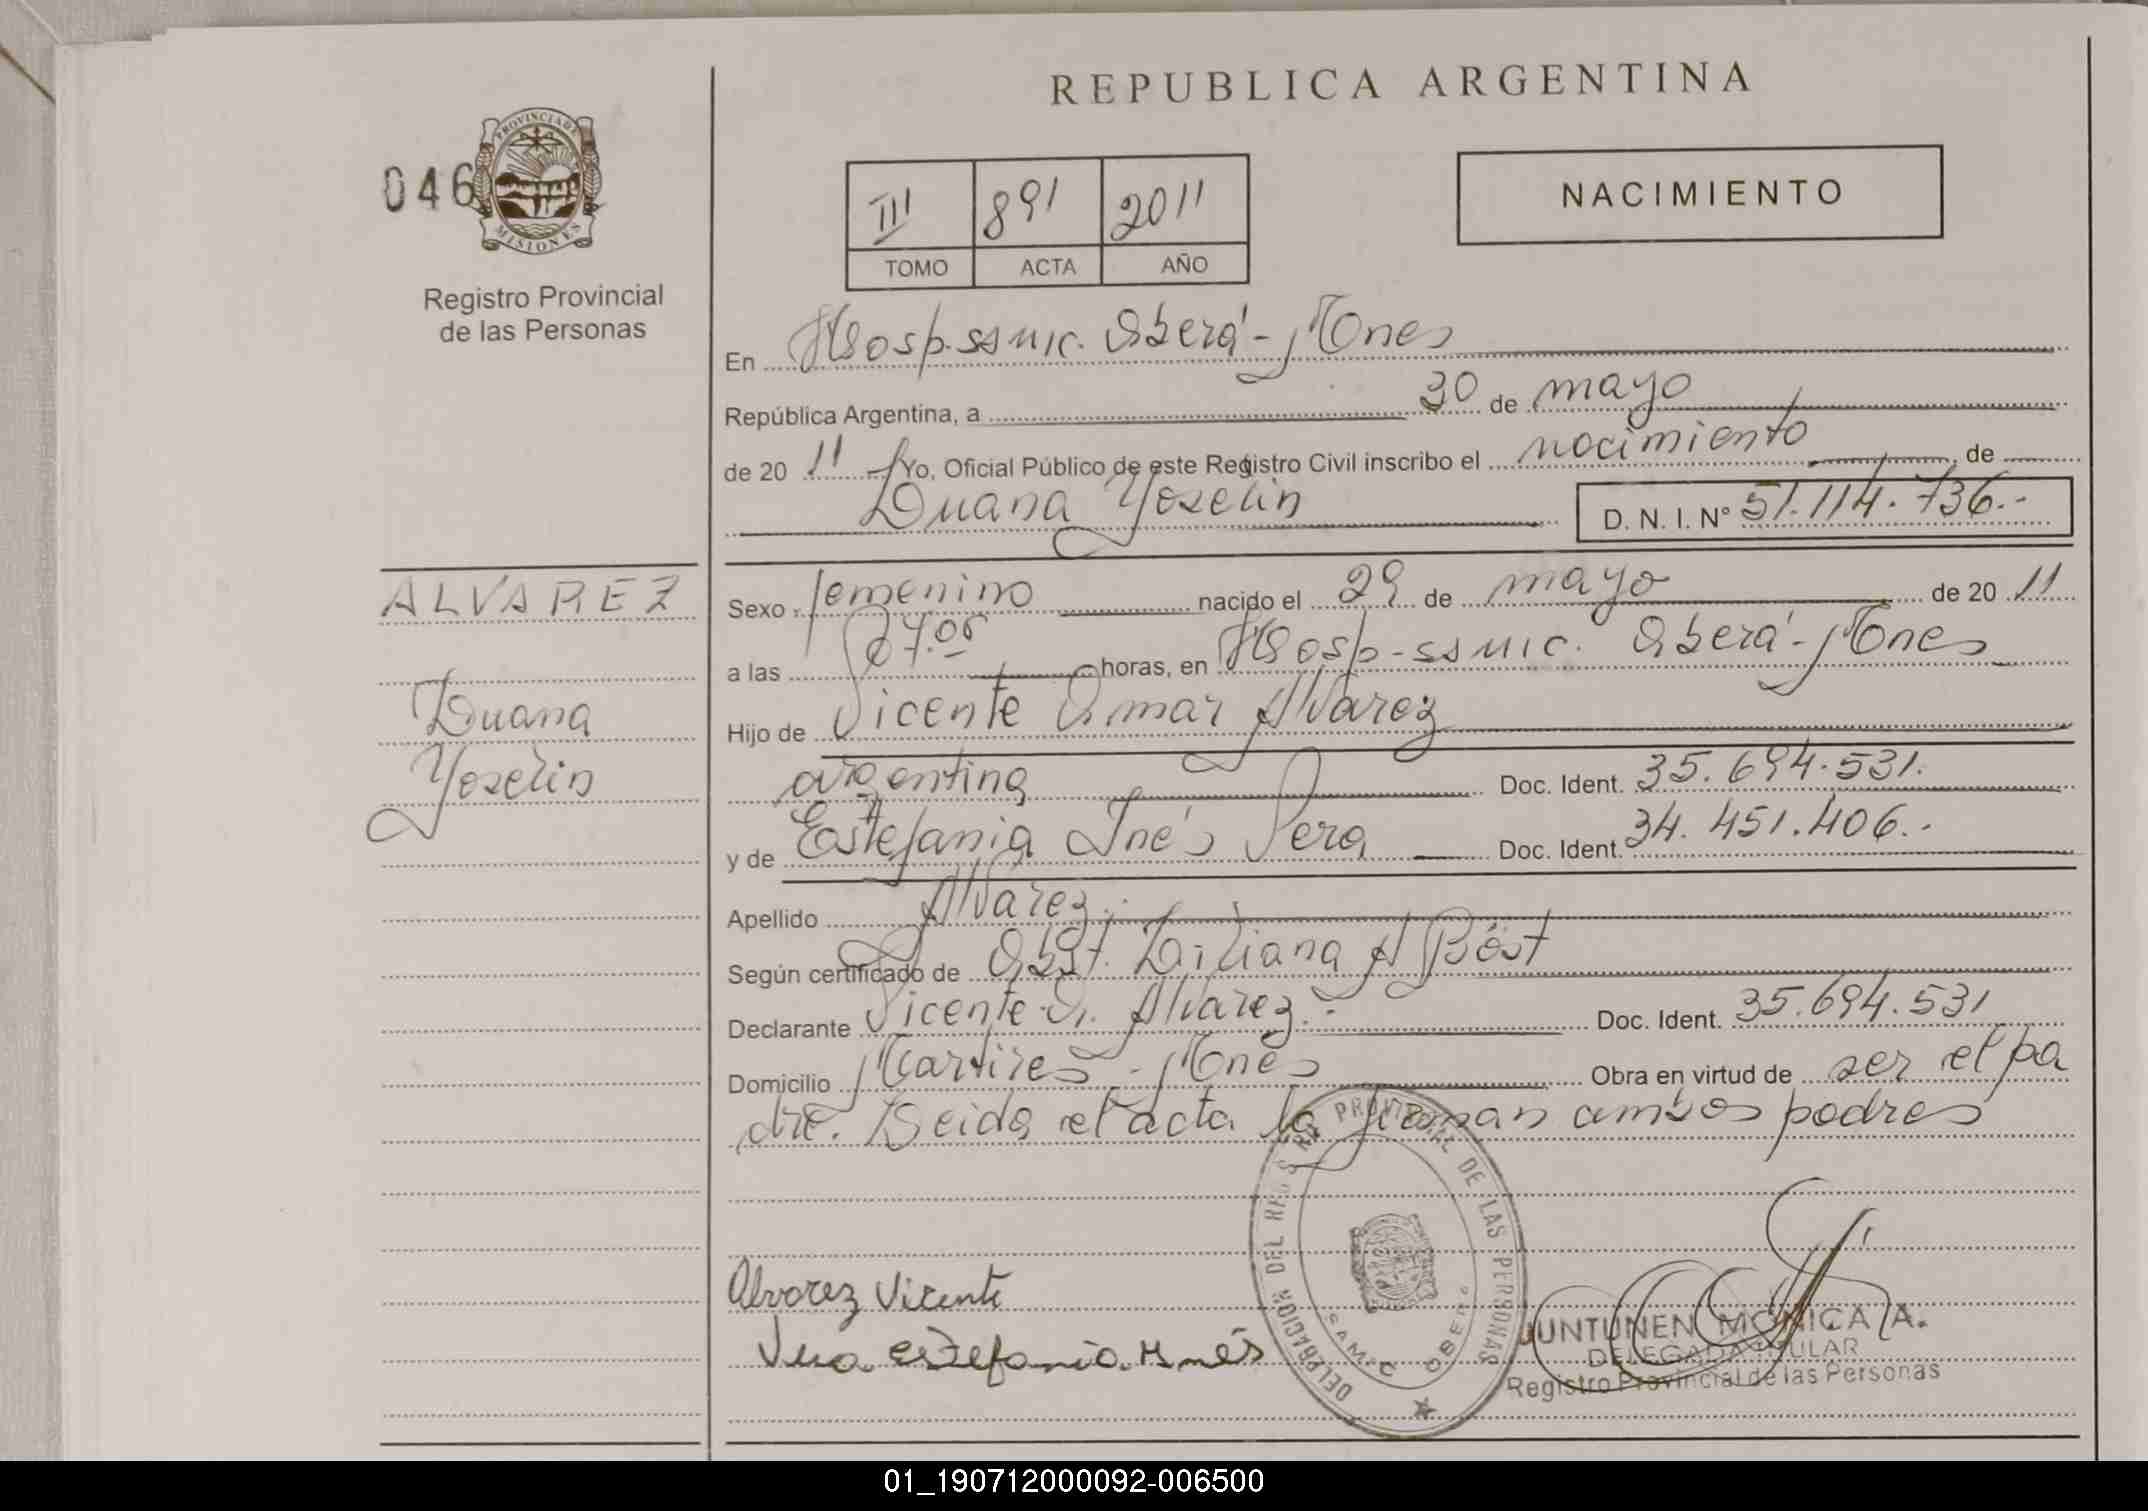 REPUBLICA ARGENTINA
046
PROVINCIA DE
MISIONES
Registro Provincial
de las Personas
III 891 2011
TOMO ACTA AÑO
NACIMIENTO
En Hosp. ssmic. Oberá - Mnes
República Argentina, a 30 de mayo
de 20 11 Yo, Oficial Público de este Registro Civil inscribo el nacimiento, de
Luana Yoselin D. N. I. N° 51.114.736.-
ALVAREZ
Luana
Yoselin
Sexo femenino nacido el 29 de mayo de 20 11
a las horas, en Hosp - ssmic. Oberá - Mnes
Hijo de Vicente Omar Alvarez
argentina Doc. Ident. 35.694.531.
y de Estefania Inés Vera Doc. Ident. 34.451.406.-
Apellido Alvarez.-
Según certificado de Obst. Liliana A Böst
Declarante Vicente O. Alvarez.- Doc. Ident. 35.694.531
Domicilio Martires - Mnes Obra en virtud de ser el pa
dre. Leida el acta la firman ambos padres
Alvarez Vicente
Vera Estefania Inés
DELEGACION DEL REGISTRO PROVINCIAL DE LAS PERSONAS
SAMIC OBERA
JUNTUNEN MONICA A.
DELEGADA TITULAR
Registro Provincial de las Personas
01_190712000092-006500